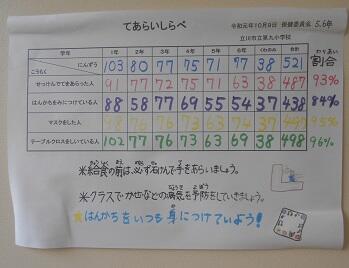 てあらいしらべ
令和元年10月9日 保健委員会 5.6年
立川市立第九小学校
学年 1年 2年 3年 4年 5年 6年 くわのみ 合計 わりあい 割合
こうもく にんずう 103 80 77 75 71 77 38 521
せっけんでてをあらった人 91 77 72 75 71 63 38 487 93%
はんかちをみにつけている人 88 58 77 69 55 54 37 438 84%
マスクをした人 74 37 95%
テーブルクロスをしいている人 102 77 76 73 63 69 38 498 96%
※給食の前は、必ず石けんで手をあらいましょう。
※クラスでかぜなどの病気を予防をしていきましょう。
★はんかちをいつも身につけていよう!